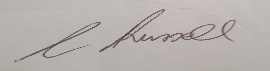 L Russell